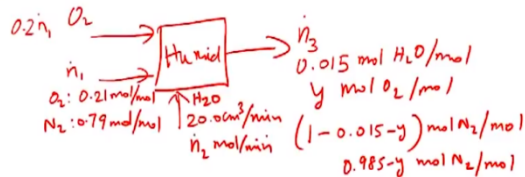 0.2ṅ₁ O₂
Humid
ṅ₁
O₂: 0.21 mol/mol
N₂: 0.79 mol/mol
H₂O
20.0 cm³/min
ṅ₂ mol/min
ṅ₃
0.015 mol H₂O/mol
y mol O₂/mol
(1-0.015-y) mol N₂/mol
0.985-y mol N₂/mol